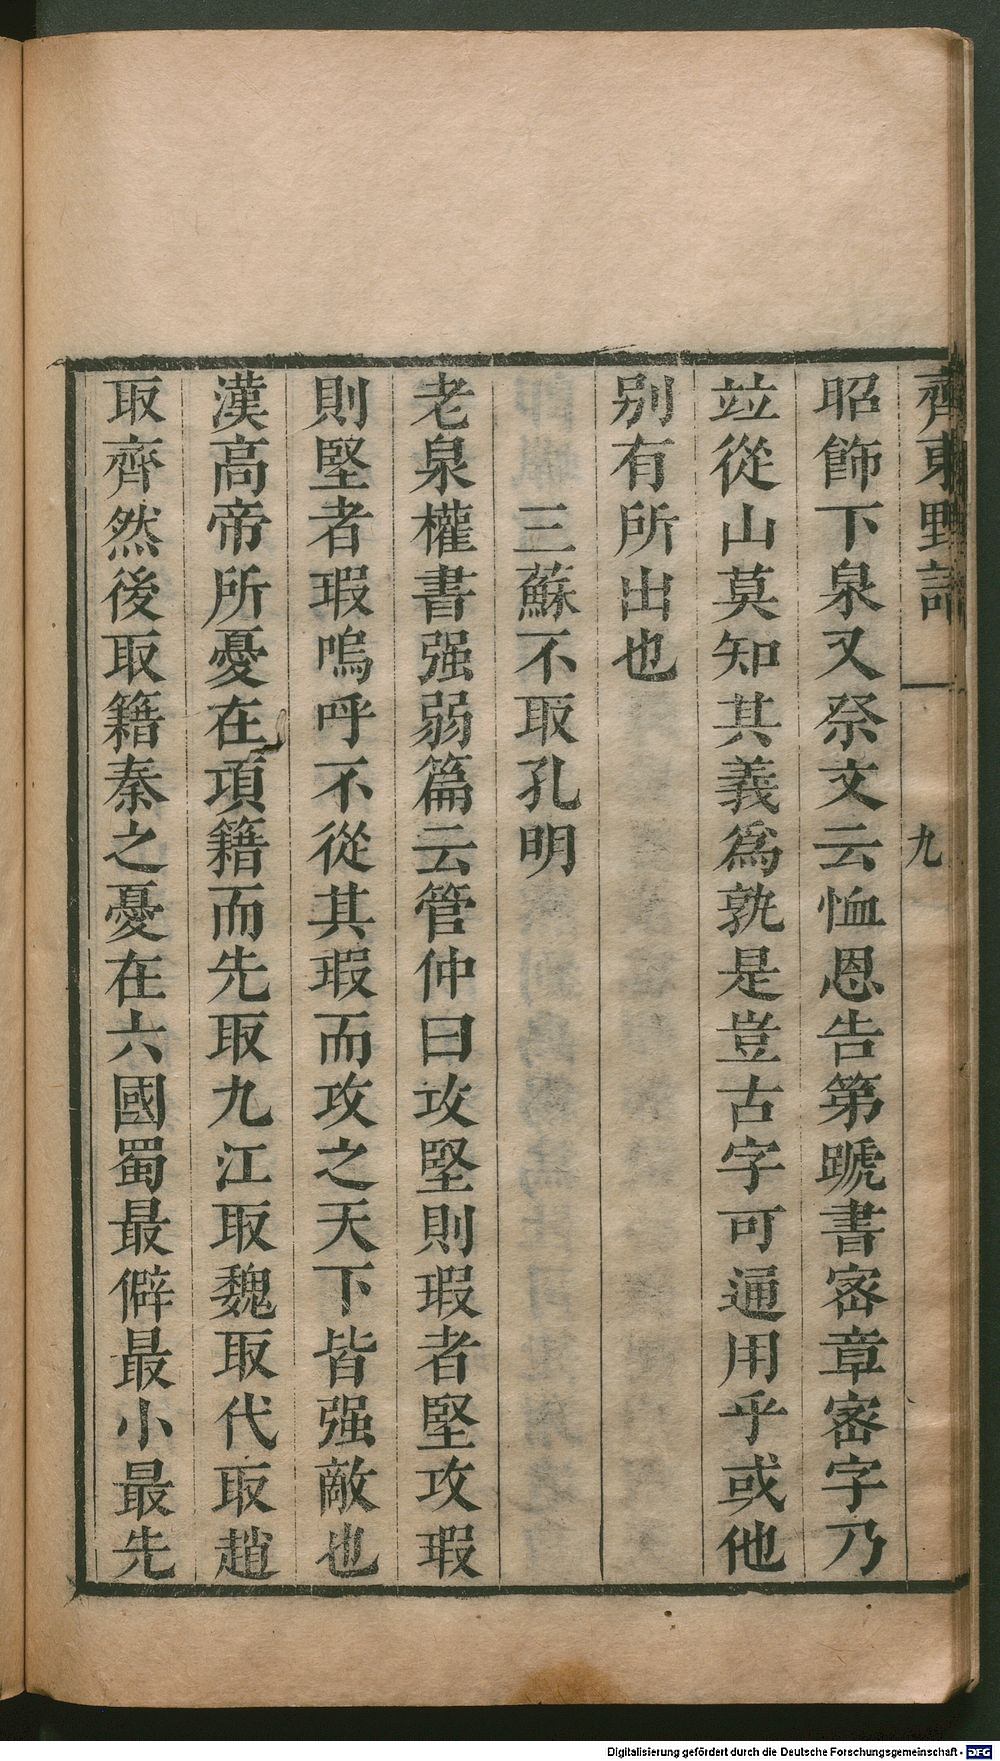 齊東野語 一 九
昭飾下泉又祭文云恤恩告第蹏書宻章宻字乃
竝從山莫知其義爲孰是豈古字可通用乎或他
别有所出也
三蘇不取孔明
老泉權書强弱篇云管仲曰攻堅則瑕者堅攻瑕
則堅者瑕嗚呼不從其瑕而攻之天下皆强敵也
漢高帝所憂在項籍而先取九江取魏取代取趙
取齊然後取籍秦之憂在六國蜀最僻最小最先
Digitalisierung gefördert durch die Deutsche Forschungsgemeinschaft - DFG